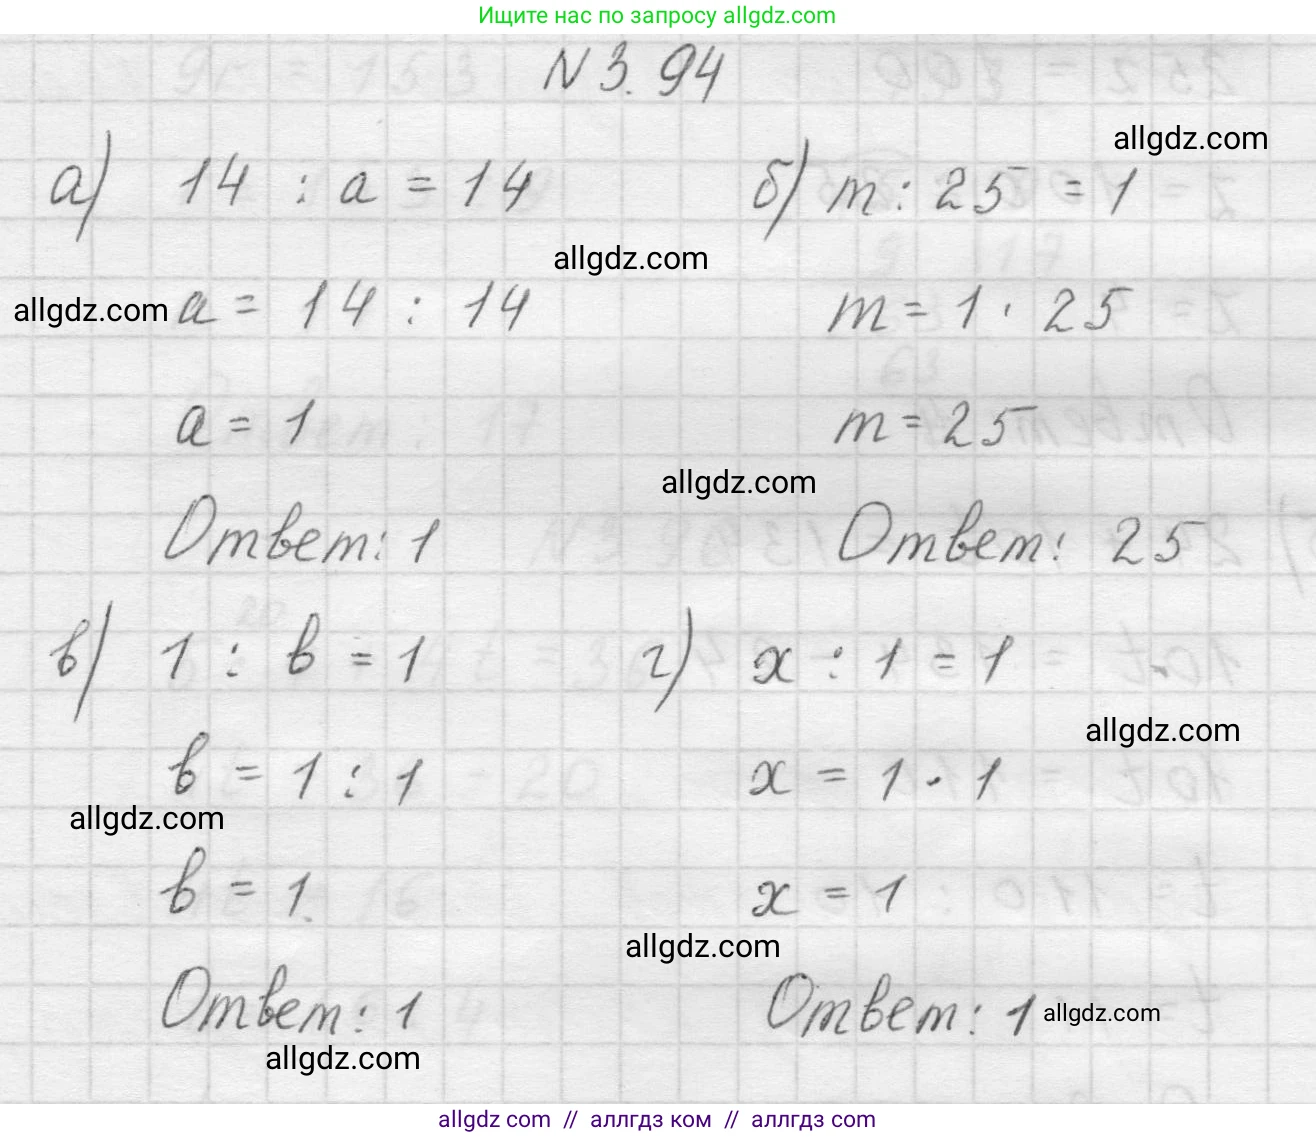 Ищите нас по запросу allgdz.com
N 3. 94
allgdz.com
а) 14 : a = 14
б) m : 25 = 1
allgdz.com
allgdz.com
a = 14 : 14
m = 1 · 25
a = 1
m = 25
allgdz.com
Ответ: 1
Ответ: 25
в) 1 : в = 1
г) x : 1 = 1
allgdz.com
в = 1 : 1
x = 1 · 1
allgdz.com
в = 1.
x = 1
allgdz.com
Ответ: 1
Ответ: 1
allgdz.com
allgdz.com
allgdz com // аллгдз ком // аллгдз com